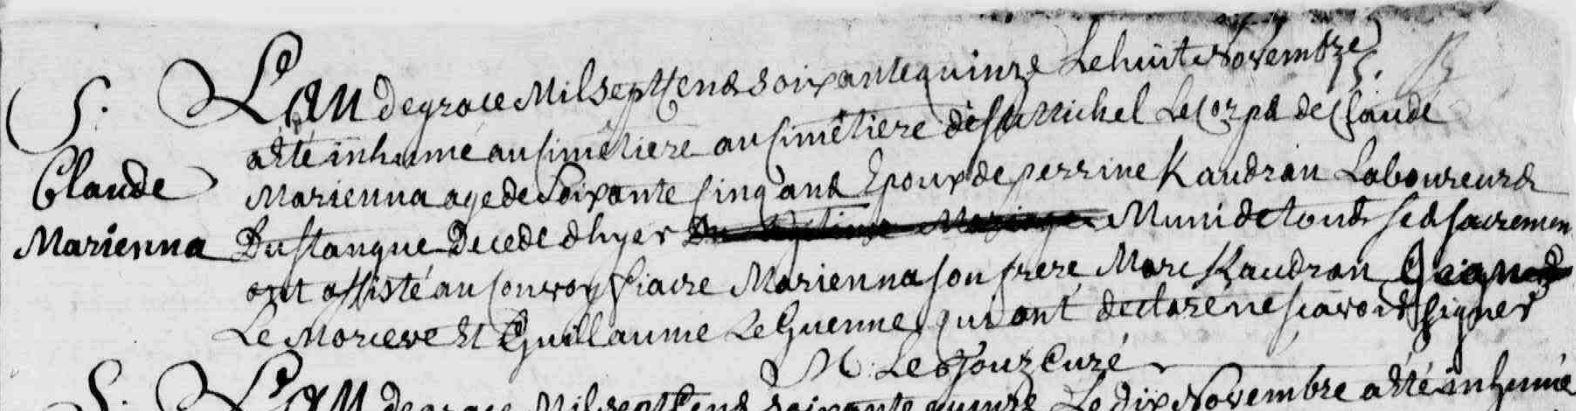 S.
Claude
Marienna
L'an de grace Mil Sept Cend soixante quinze Le huit Novembre
a été inhumé au simétiere au simétiere de St Michel Le Corpd de Claude
Marienna age de Soixante sinq and Epoux de perrine Kaudran Laboureurd
Du stanque Decede d'hyer Du Legitime Mariage Muni de toud sed sacremen
ont assisté au Convoy fiacre Marienna son frere Marc Kaudran
Le Morceve Et Guillaume Le Guenne qui ont declaré ne scavoir signer
Curé
S. L'an de grace Mil sept Cend soixante quinze Le dix Novembre a été inhumé